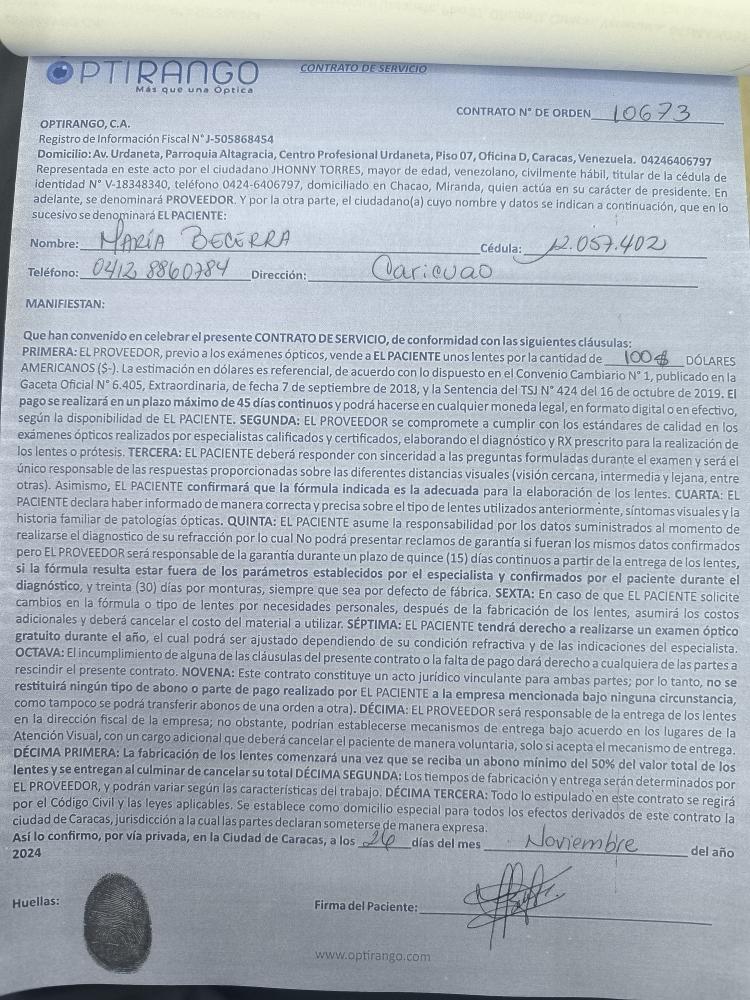 OPTIRANGO
Más que una Óptica
CONTRATO DE SERVICIO
CONTRATO N° DE ORDEN 10673
OPTIRANGO, C.A.
Registro de Información Fiscal N° J-505868454
Domicilio: Av. Urdaneta, Parroquia Altagracia, Centro Profesional Urdaneta, Piso 07, Oficina D, Caracas, Venezuela. 04246406797
Representada en este acto por el ciudadano JHONNY TORRES, mayor de edad, venezolano, civilmente hábil, titular de la cédula de
identidad N° V-18348340, teléfono 0424-6406797, domiciliado en Chacao, Miranda, quien actúa en su carácter de presidente. En
adelante, se denominará PROVEEDOR. Y por la otra parte, el ciudadano(a) cuyo nombre y datos se indican a continuación, que en lo
sucesivo se denominará EL PACIENTE:
Nombre: MARÍA BECERRA Cédula: 12.057.402
Teléfono: 0412 8860784 Dirección: Caricuao
MANIFIESTAN:
Que han convenido en celebrar el presente CONTRATO DE SERVICIO, de conformidad con las siguientes cláusulas:
PRIMERA: EL PROVEEDOR, previo a los exámenes ópticos, vende a EL PACIENTE unos lentes por la cantidad de 100$ DÓLARES
AMERICANOS ($-). La estimación en dólares es referencial, de acuerdo con lo dispuesto en el Convenio Cambiario N° 1, publicado en la
Gaceta Oficial N° 6.405, Extraordinaria, de fecha 7 de septiembre de 2018, y la Sentencia del TSJ N° 424 del 16 de octubre de 2019. El
pago se realizará en un plazo máximo de 45 días continuos y podrá hacerse en cualquier moneda legal, en formato digital o en efectivo,
según la disponibilidad de EL PACIENTE. SEGUNDA: EL PROVEEDOR se compromete a cumplir con los estándares de calidad en los
exámenes ópticos realizados por especialistas calificados y certificados, elaborando el diagnóstico y RX prescrito para la realización de
los lentes o prótesis. TERCERA: EL PACIENTE deberá responder con sinceridad a las preguntas formuladas durante el examen y será el
único responsable de las respuestas proporcionadas sobre las diferentes distancias visuales (visión cercana, intermedia y lejana, entre
otras). Asimismo, EL PACIENTE confirmará que la fórmula indicada es la adecuada para la elaboración de los lentes. CUARTA: EL
PACIENTE declara haber informado de manera correcta y precisa sobre el tipo de lentes utilizados anteriormente, síntomas visuales y la
historia familiar de patologías ópticas. QUINTA: EL PACIENTE asume la responsabilidad por los datos suministrados al momento de
realizarse el diagnostico de su refracción por lo cual No podrá presentar reclamos de garantía si fueran los mismos datos confirmados
pero EL PROVEEDOR será responsable de la garantía durante un plazo de quince (15) días continuos a partir de la entrega de los lentes,
si la fórmula resulta estar fuera de los parámetros establecidos por el especialista y confirmados por el paciente durante el
diagnóstico, y treinta (30) días por monturas, siempre que sea por defecto de fábrica. SEXTA: En caso de que EL PACIENTE solicite
cambios en la fórmula o tipo de lentes por necesidades personales, después de la fabricación de los lentes, asumirá los costos
adicionales y deberá cancelar el costo del material a utilizar. SÉPTIMA: EL PACIENTE tendrá derecho a realizarse un examen óptico
gratuito durante el año, el cual podrá ser ajustado dependiendo de su condición refractiva y de las indicaciones del especialista.
OCTAVA: El incumplimiento de alguna de las cláusulas del presente contrato o la falta de pago dará derecho a cualquiera de las partes a
rescindir el presente contrato. NOVENA: Este contrato constituye un acto jurídico vinculante para ambas partes; por lo tanto, no se
restituirá ningún tipo de abono o parte de pago realizado por EL PACIENTE a la empresa mencionada bajo ninguna circunstancia,
como tampoco se podrá transferir abonos de una orden a otra). DÉCIMA: EL PROVEEDOR será responsable de la entrega de los lentes
en la dirección fiscal de la empresa; no obstante, podrían establecerse mecanismos de entrega bajo acuerdo en los lugares de la
Atención Visual, con un cargo adicional que deberá cancelar el paciente de manera voluntaria, solo si acepta el mecanismo de entrega.
DÉCIMA PRIMERA: La fabricación de los lentes comenzará una vez que se reciba un abono mínimo del 50% del valor total de los
lentes y se entregan al culminar de cancelar su total DÉCIMA SEGUNDA: Los tiempos de fabricación y entrega serán determinados por
EL PROVEEDOR, y podrán variar según las características del trabajo. DÉCIMA TERCERA: Todo lo estipulado en este contrato se regirá
por el Código Civil y las leyes aplicables. Se establece como domicilio especial para todos los efectos derivados de este contrato la
ciudad de Caracas, jurisdicción a la cual las partes declaran someterse de manera expresa.
Así lo confirmo, por vía privada, en la Ciudad de Caracas, a los 26 días del mes Noviembre del año
2024
Huellas:
Firma del Paciente:
www.optirango.com